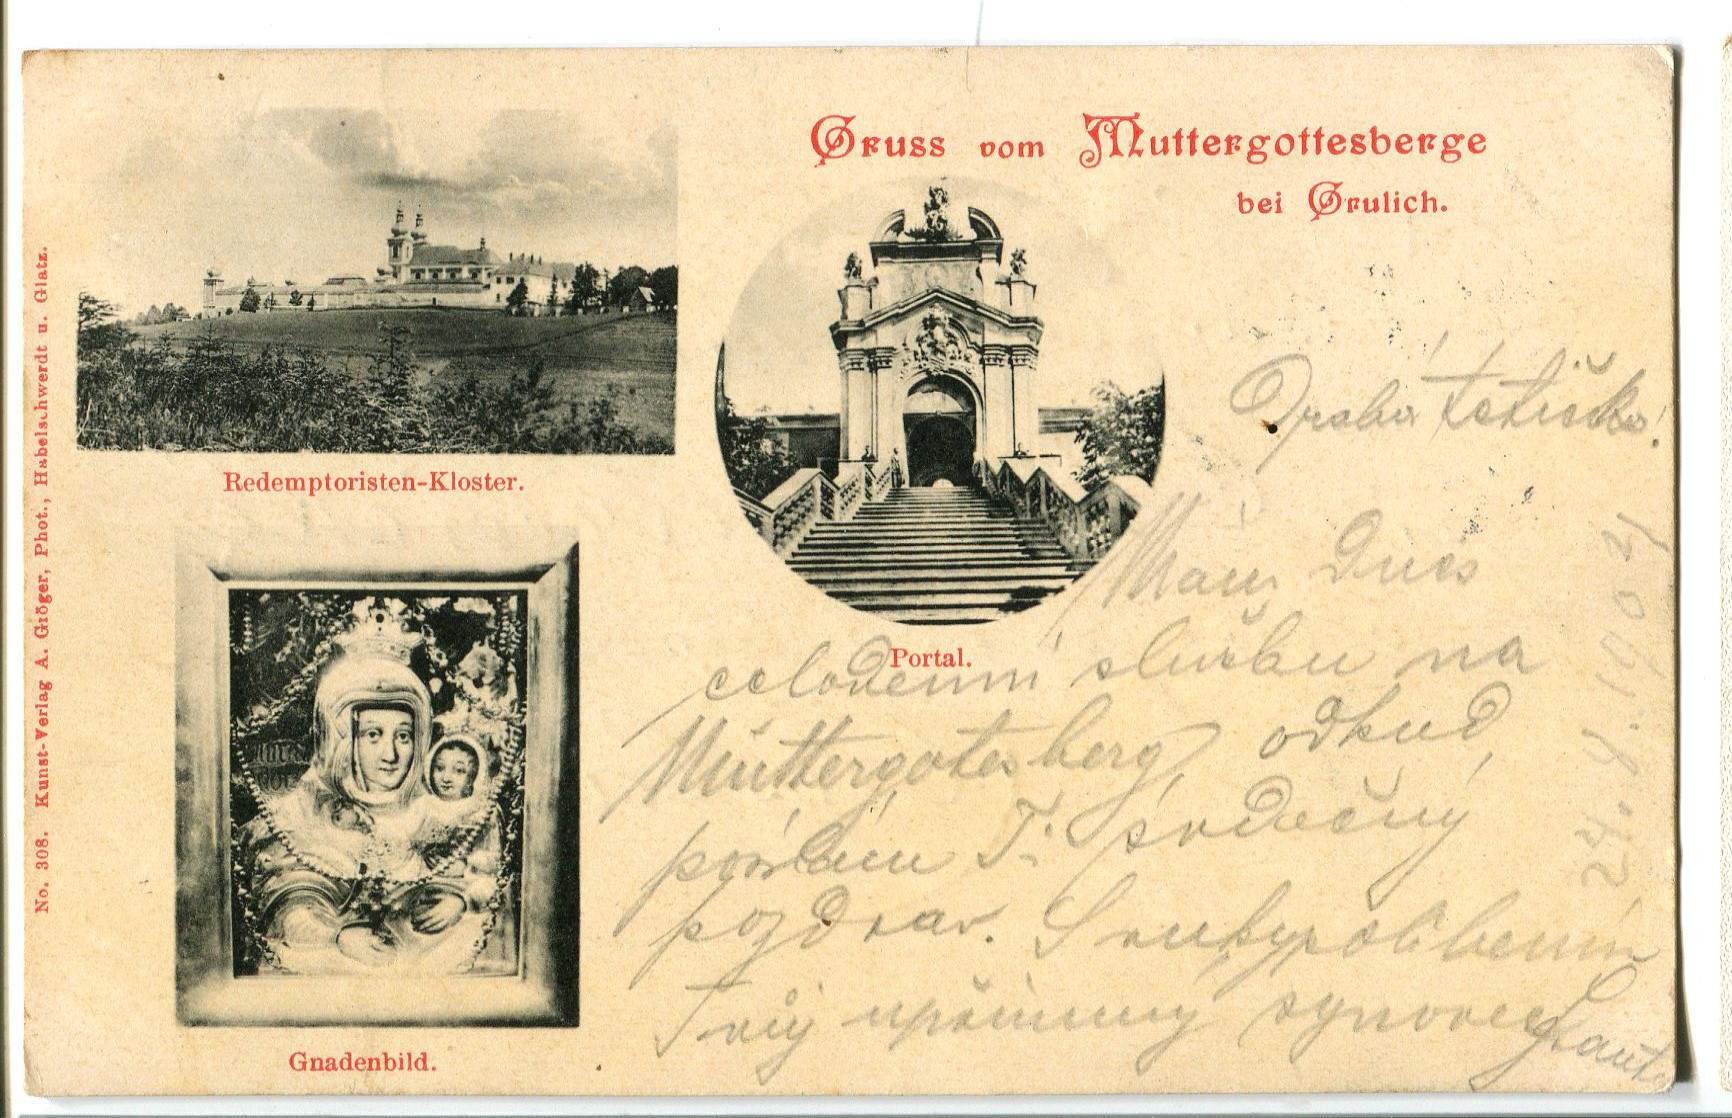 Gruss vom Muttergottesberge
bei Grulich.
Redemptoristen-Kloster.
Portal.
Gnadenbild.
No. 308. Kunst-Verlag A. Gröger, Phot., Habelschwerdt u. Glatz.
Drahá tetičko!
Mám dnes
celodenní službu na
Muttergotesberg, odkud
posílám T. srdečný
pozdrav. S
Tvůj upřímný synovec